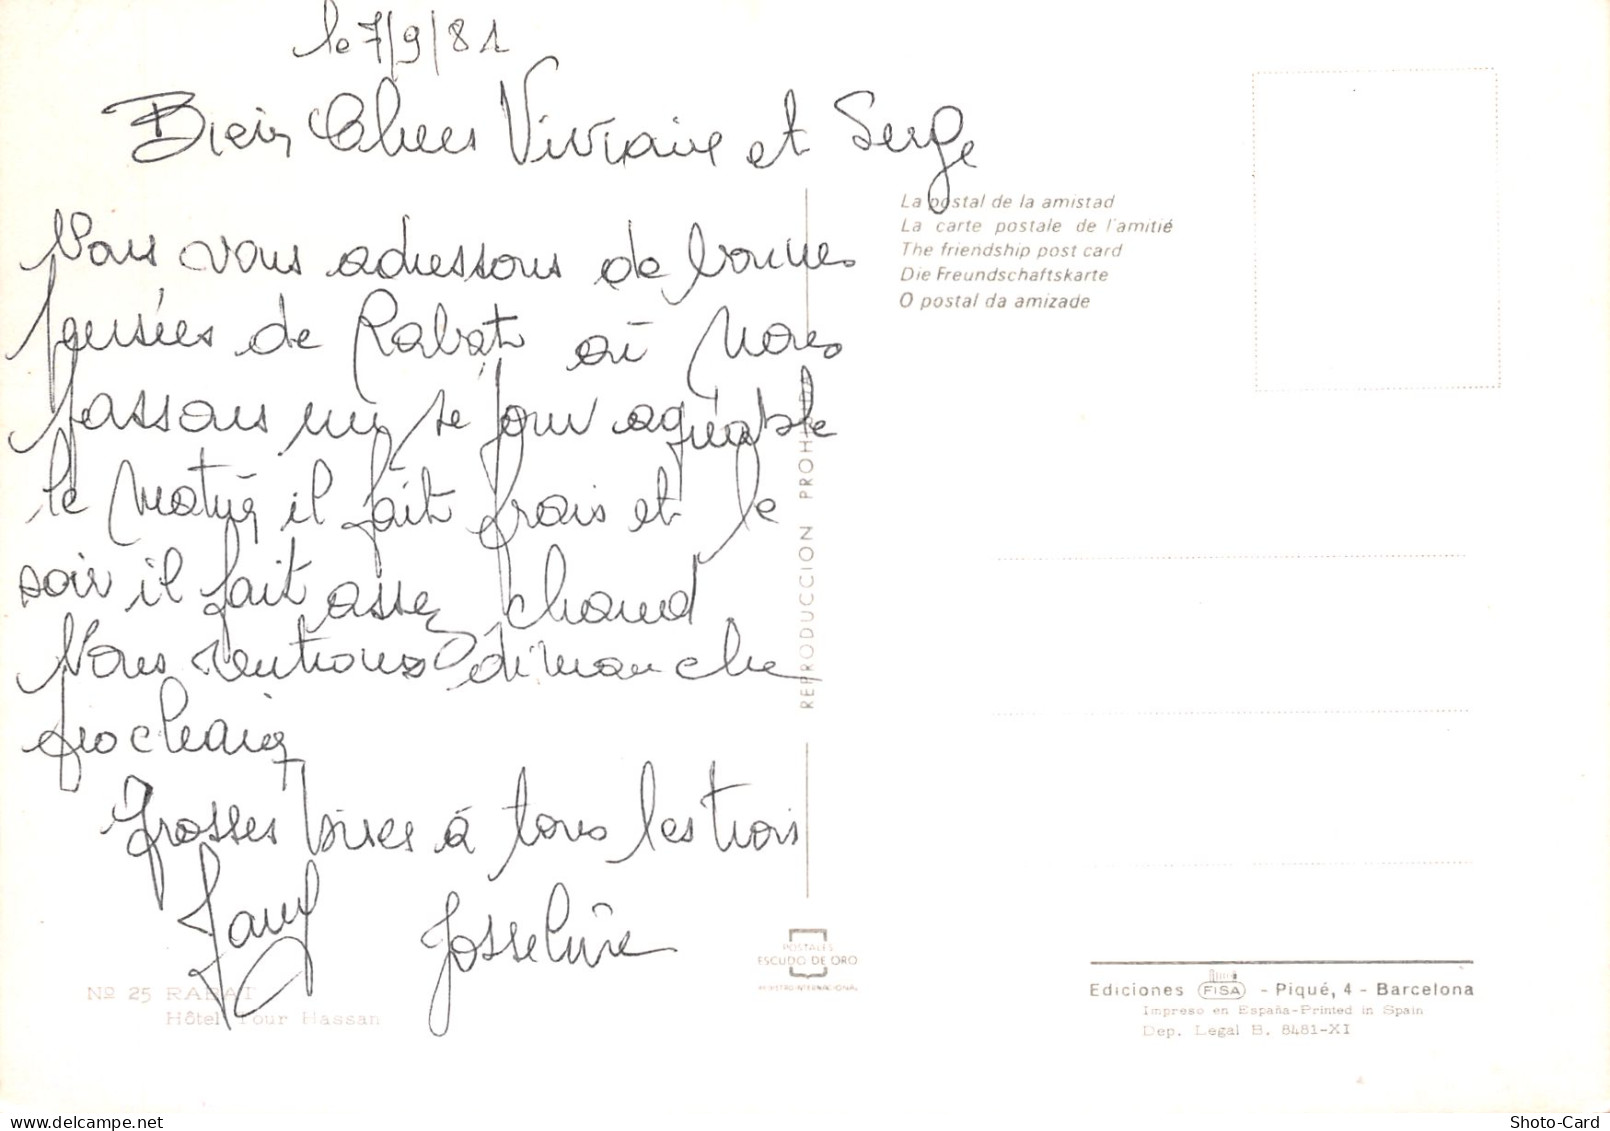 le 7/9/81
Bien Chers Viviane et Serge
Nous vous adressons de bonnes
pensées de Rabat où nous
passons un séjour agréable
le matin il fait frais et le
soir il fait assez chaud
Nous rentrons dimanche
prochain
Grosses bises à tous les trois
Josseline
La postal de la amistad
La carte postale de l'amitié
The friendship post card
Die Freundschaftskarte
O postal da amizade
REPRODUCCION PROHIBIDA
POSTALES
ESCUDO DE ORO
REGISTRO INTERNACIONAL
Nº 25 RABAT
Hôtel Tour Hassan
Ediciones FISA - Piqué, 4 - Barcelona
Impreso en España-Printed in Spain
Dep. Legal B. 8481-XI
Shoto-Card